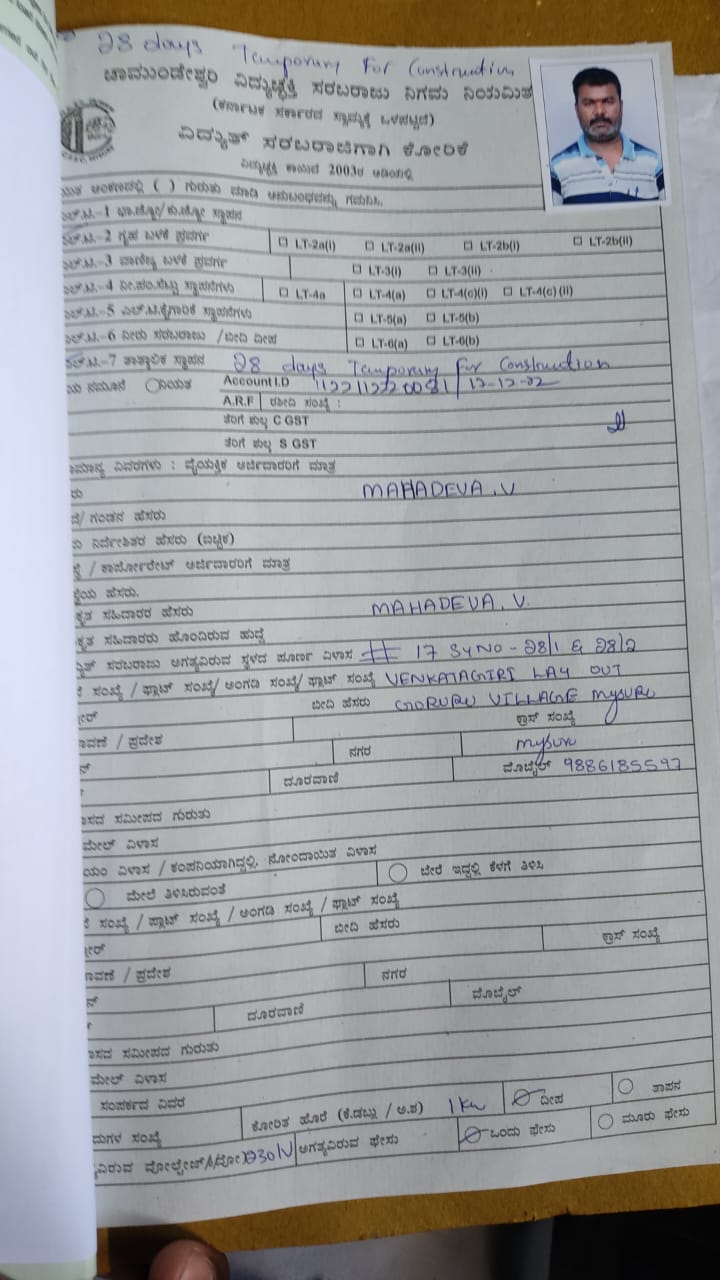 28 days Temporary For Construction
ಚಾಮುಂಡೇಶ್ವರಿ ವಿದ್ಯುಚ್ಛಕ್ತಿ ಸರಬರಾಜು ನಿಗಮ ನಿಯಮಿತ
(ಕರ್ನಾಟಕ ಸರ್ಕಾರದ ಸ್ವಾಮ್ಯಕ್ಕೆ ಒಳಪಟ್ಟಿದೆ)
ವಿದ್ಯುತ್ ಸರಬರಾಜಿಗಾಗಿ ಕೋರಿಕೆ
ವಿದ್ಯುಚ್ಛಕ್ತಿ ಕಾಯಿದೆ 2003ರ ಅಡಿಯಲ್ಲಿ
ಅಂಕಣದಲ್ಲಿ ( ) ಗುರುತು ಮಾಡಿ ಅನುಬಂಧವನ್ನು ಗಮನಿಸಿ.
ಎಲ್.ಟಿ.-1 ಭಾ.ಜ್ಯೋ/ಕು.ಜ್ಯೋ ಸ್ಥಾಪನ
ಎಲ್.ಟಿ.-2 ಗೃಹ ಬಳಕೆ ಪ್ರವರ್ಗ ☐ LT-2a(i) ☐ LT-2a(ii) ☐ LT-2b(i) ☐ LT-2b(ii)
ಎಲ್.ಟಿ.-3 ವಾಣಿಜ್ಯ ಬಳಕೆ ಪ್ರವರ್ಗ ☐ LT-3(i) ☐ LT-3(ii)
ಎಲ್.ಟಿ.-4 ನೀ.ಪಂ.ಸೆಟ್ಟು ಸ್ಥಾಪನೆಗಳು ☐ LT-4a ☐ LT-4(a) ☐ LT-4(c)(i) ☐ LT-4(c)(ii)
ಎಲ್.ಟಿ.-5 ಎಲ್.ಟಿ.ಕೈಗಾರಿಕೆ ಸ್ಥಾಪನೆಗಳು ☐ LT-5(a) ☐ LT-5(b)
ಎಲ್.ಟಿ.-6 ನೀರು ಸರಬರಾಜು /ಬೀದಿ ದೀಪ ☐ LT-6(a) ☐ LT-6(b)
ಎಲ್.ಟಿ.-7 ತಾತ್ಕಾಲಿಕ ಸ್ಥಾಪನ 28 days Temporary For Construction
ಯ ನಮೂನೆ ನಿಯತ Account I.D 112211220081 / 12-12-22
A.R.F ರಶೀದಿ ಸಂಖ್ಯೆ :
ತೆರಿಗೆ ಶುಲ್ಕ C GST
ತೆರಿಗೆ ಶುಲ್ಕ S GST
ಾಮಾನ್ಯ ವಿವರಗಳು : ವೈಯಕ್ತಿಕ ಅರ್ಜಿದಾರರಿಗೆ ಮಾತ್ರ
ರು MAHADEVA.V
/ ಗಂಡನ ಹೆಸರು
ನಿರ್ದೇಶಿತರ ಹೆಸರು (ಐಚ್ಛಿಕ)
/ ಕಾರ್ಪೋರೇಟ್ ಅರ್ಜಿದಾರರಿಗೆ ಮಾತ್ರ
ಸ್ಥೆಯ ಹೆಸರು.
ಕೃತ ಸಹಿದಾರರ ಹೆಸರು MAHADEVA.V.
ಕೃತ ಸಹಿದಾರರು ಹೊಂದಿರುವ ಹುದ್ದೆ
ತ್ ಸರಬರಾಜು ಅಗತ್ಯವಿರುವ ಸ್ಥಳದ ಪೂರ್ಣ ವಿಳಾಸ # 17 SYNO - 28/1 & 28/2
ಸಂಖ್ಯೆ / ಫ್ಲಾಟ್ ಸಂಖ್ಯೆ/ ಅಂಗಡಿ ಸಂಖ್ಯೆ/ ಪ್ಲಾಟ್ ಸಂಖ್ಯೆ VENKATAGIRI LAY OUT
ಬೀದಿ ಹೆಸರು GORURU VILLAGE Mysuru
ಕ್ರಾಸ್ ಸಂಖ್ಯೆ
ಾವಣೆ / ಪ್ರದೇಶ ನಗರ mysuru
ದೂರವಾಣಿ ಮೊಬೈಲ್ 9886185597
ಾಸದ ಸಮೀಪದ ಗುರುತು
ಮೇಲ್ ವಿಳಾಸ
ಯಂ ವಿಳಾಸ / ಕಂಪನಿಯಾಗಿದ್ದಲ್ಲಿ, ನೋಂದಾಯಿತ ವಿಳಾಸ
ಮೇಲೆ ತಿಳಿಸಿರುವಂತೆ ಬೇರೆ ಇದ್ದಲ್ಲಿ ಕೆಳಗೆ ತಿಳಿಸಿ
ಸಂಖ್ಯೆ / ಫ್ಲಾಟ್ ಸಂಖ್ಯೆ / ಅಂಗಡಿ ಸಂಖ್ಯೆ / ಪ್ಲಾಟ್ ಸಂಖ್ಯೆ
ಬೀದಿ ಹೆಸರು ಕ್ರಾಸ್ ಸಂಖ್ಯೆ
ಾವಣೆ / ಪ್ರದೇಶ ನಗರ
ದೂರವಾಣಿ ಮೊಬೈಲ್
ಾಸದ ಸಮೀಪದ ಗುರುತು
ಮೇಲ್ ವಿಳಾಸ
ಸಂಪರ್ಕದ ವಿವರ
ಕೋರಿತ ಹೊರೆ (ಕೆ.ಡಬ್ಲ್ಯು / ಅ.ಶ) 1 Kw ದೀಪ ತಾಪನ
ಮಗಳ ಸಂಖ್ಯೆ
ವಿರುವ ವೋಲ್ಟೇಜ್ 230 V ಅಗತ್ಯವಿರುವ ಫೇಸು ಒಂದು ಫೇಸು ಮೂರು ಫೇಸು